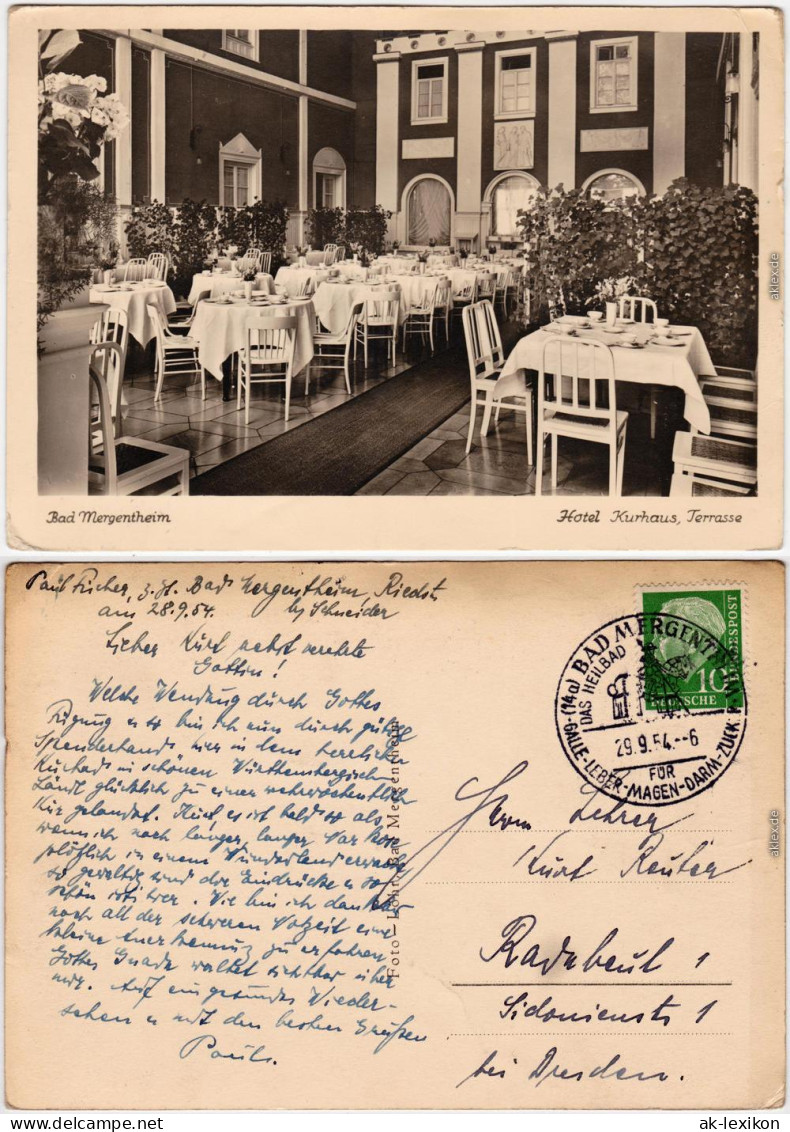 Bad Mergentheim
Hotel Kurhaus, Terrasse
Paul Fischer, z. Zt. Bad Mergentheim, Riedstr.
am 28.9.54. by Schneider
Lieber Kurt nebst verehrte
Gattin!
Welche Wendung durch Gottes
Fügung so bin ich nun durch gütige
Spenderhand hier in dem herrlichen
Kurbad im schönen Württembergischen
Ländl glücklich zu einer mehrwöchentlich
Kur gelandet.
wenn ich nach langer, langer
plötzlich in einem Wunderland erwache
so gewaltig sind die Eindrücke
schön ist wer. Wie bin ich dankbar
nach all der schweren Notzeit eine
kleine Anerkennung zu erfahren
Gottes Gnade waltet sichtbar über
mir. Auf ein gesundes Wieder-
sehen u mit den besten Grüßen
Paul.
Foto Bad Mergentheim
DEUTSCHE BUNDESPOST
10
(14a) BAD MERGENTHEIM
DAS HEILBAD
29.9.54.--6
FÜR
GALLE-LEBER-MAGEN-DARM-ZUCK
Herrn Lehrer
Kurt Reuter
Radebeul 1
Sidonienstr 1
bei Dresden.
aklex.de
aklex.de
ak-lexikon